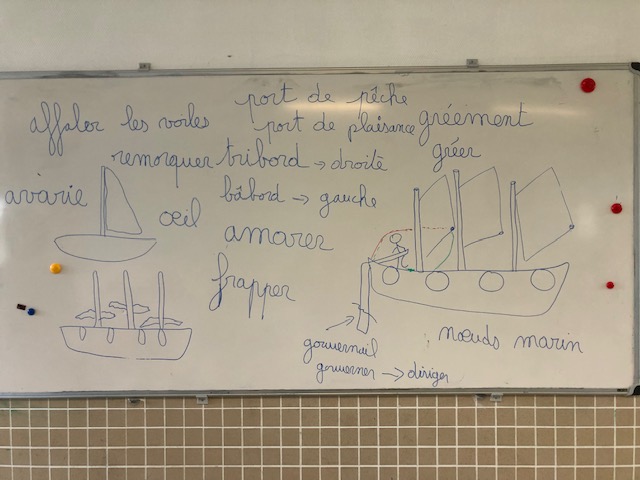 port de pêche
affaler les voiles
port de plaisance
gréement
remorquer
tribord → droite
gréer
avarie
bâbord → gauche
œil
amarer
frapper
gouvernail
gouverner → diriger
nœuds marin